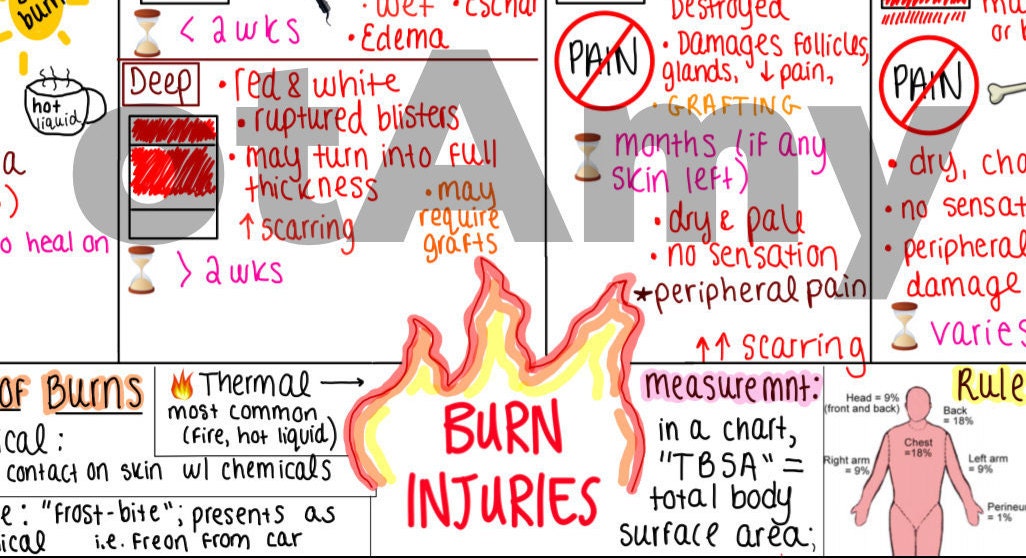 burn
hot
liquid
o heal on
< 2 wks
• wet • Eschar
• Edema
Deep
• red & white
• ruptured blisters
• may turn into full
thickness
↑ scarring
• may
require
grafts
> 2 wks
PAIN
Destroyed
• Damages follicles,
glands, ↓ pain,
• GRAFTING
months (if any
skin left)
• dry & pale
• no sensation
*peripheral pain
↑↑ scarring
PAIN
• dry, cha
• no sensat
• peripheral
damage
varies
otAmy
of Burns
ical:
contact on skin w/ chemicals
e: "frost-bite"; presents as
ical i.e. Freon from car
Thermal →
most common
(fire, hot liquid)
BURN
INJURIES
measuremnt:
in a chart,
"TBSA" =
total body
surface area;
Rule
Head = 9%
(front and back)
Back
= 18%
Chest
=18%
Right arm
= 9%
Left arm
= 9%
Perineu
= 1%